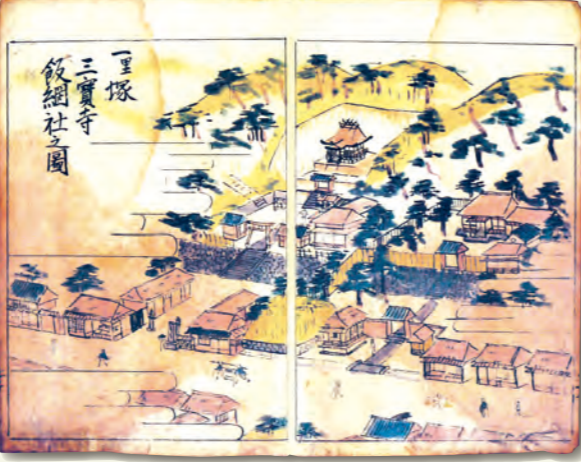 一里塚
三寳寺
飯綱社之圖